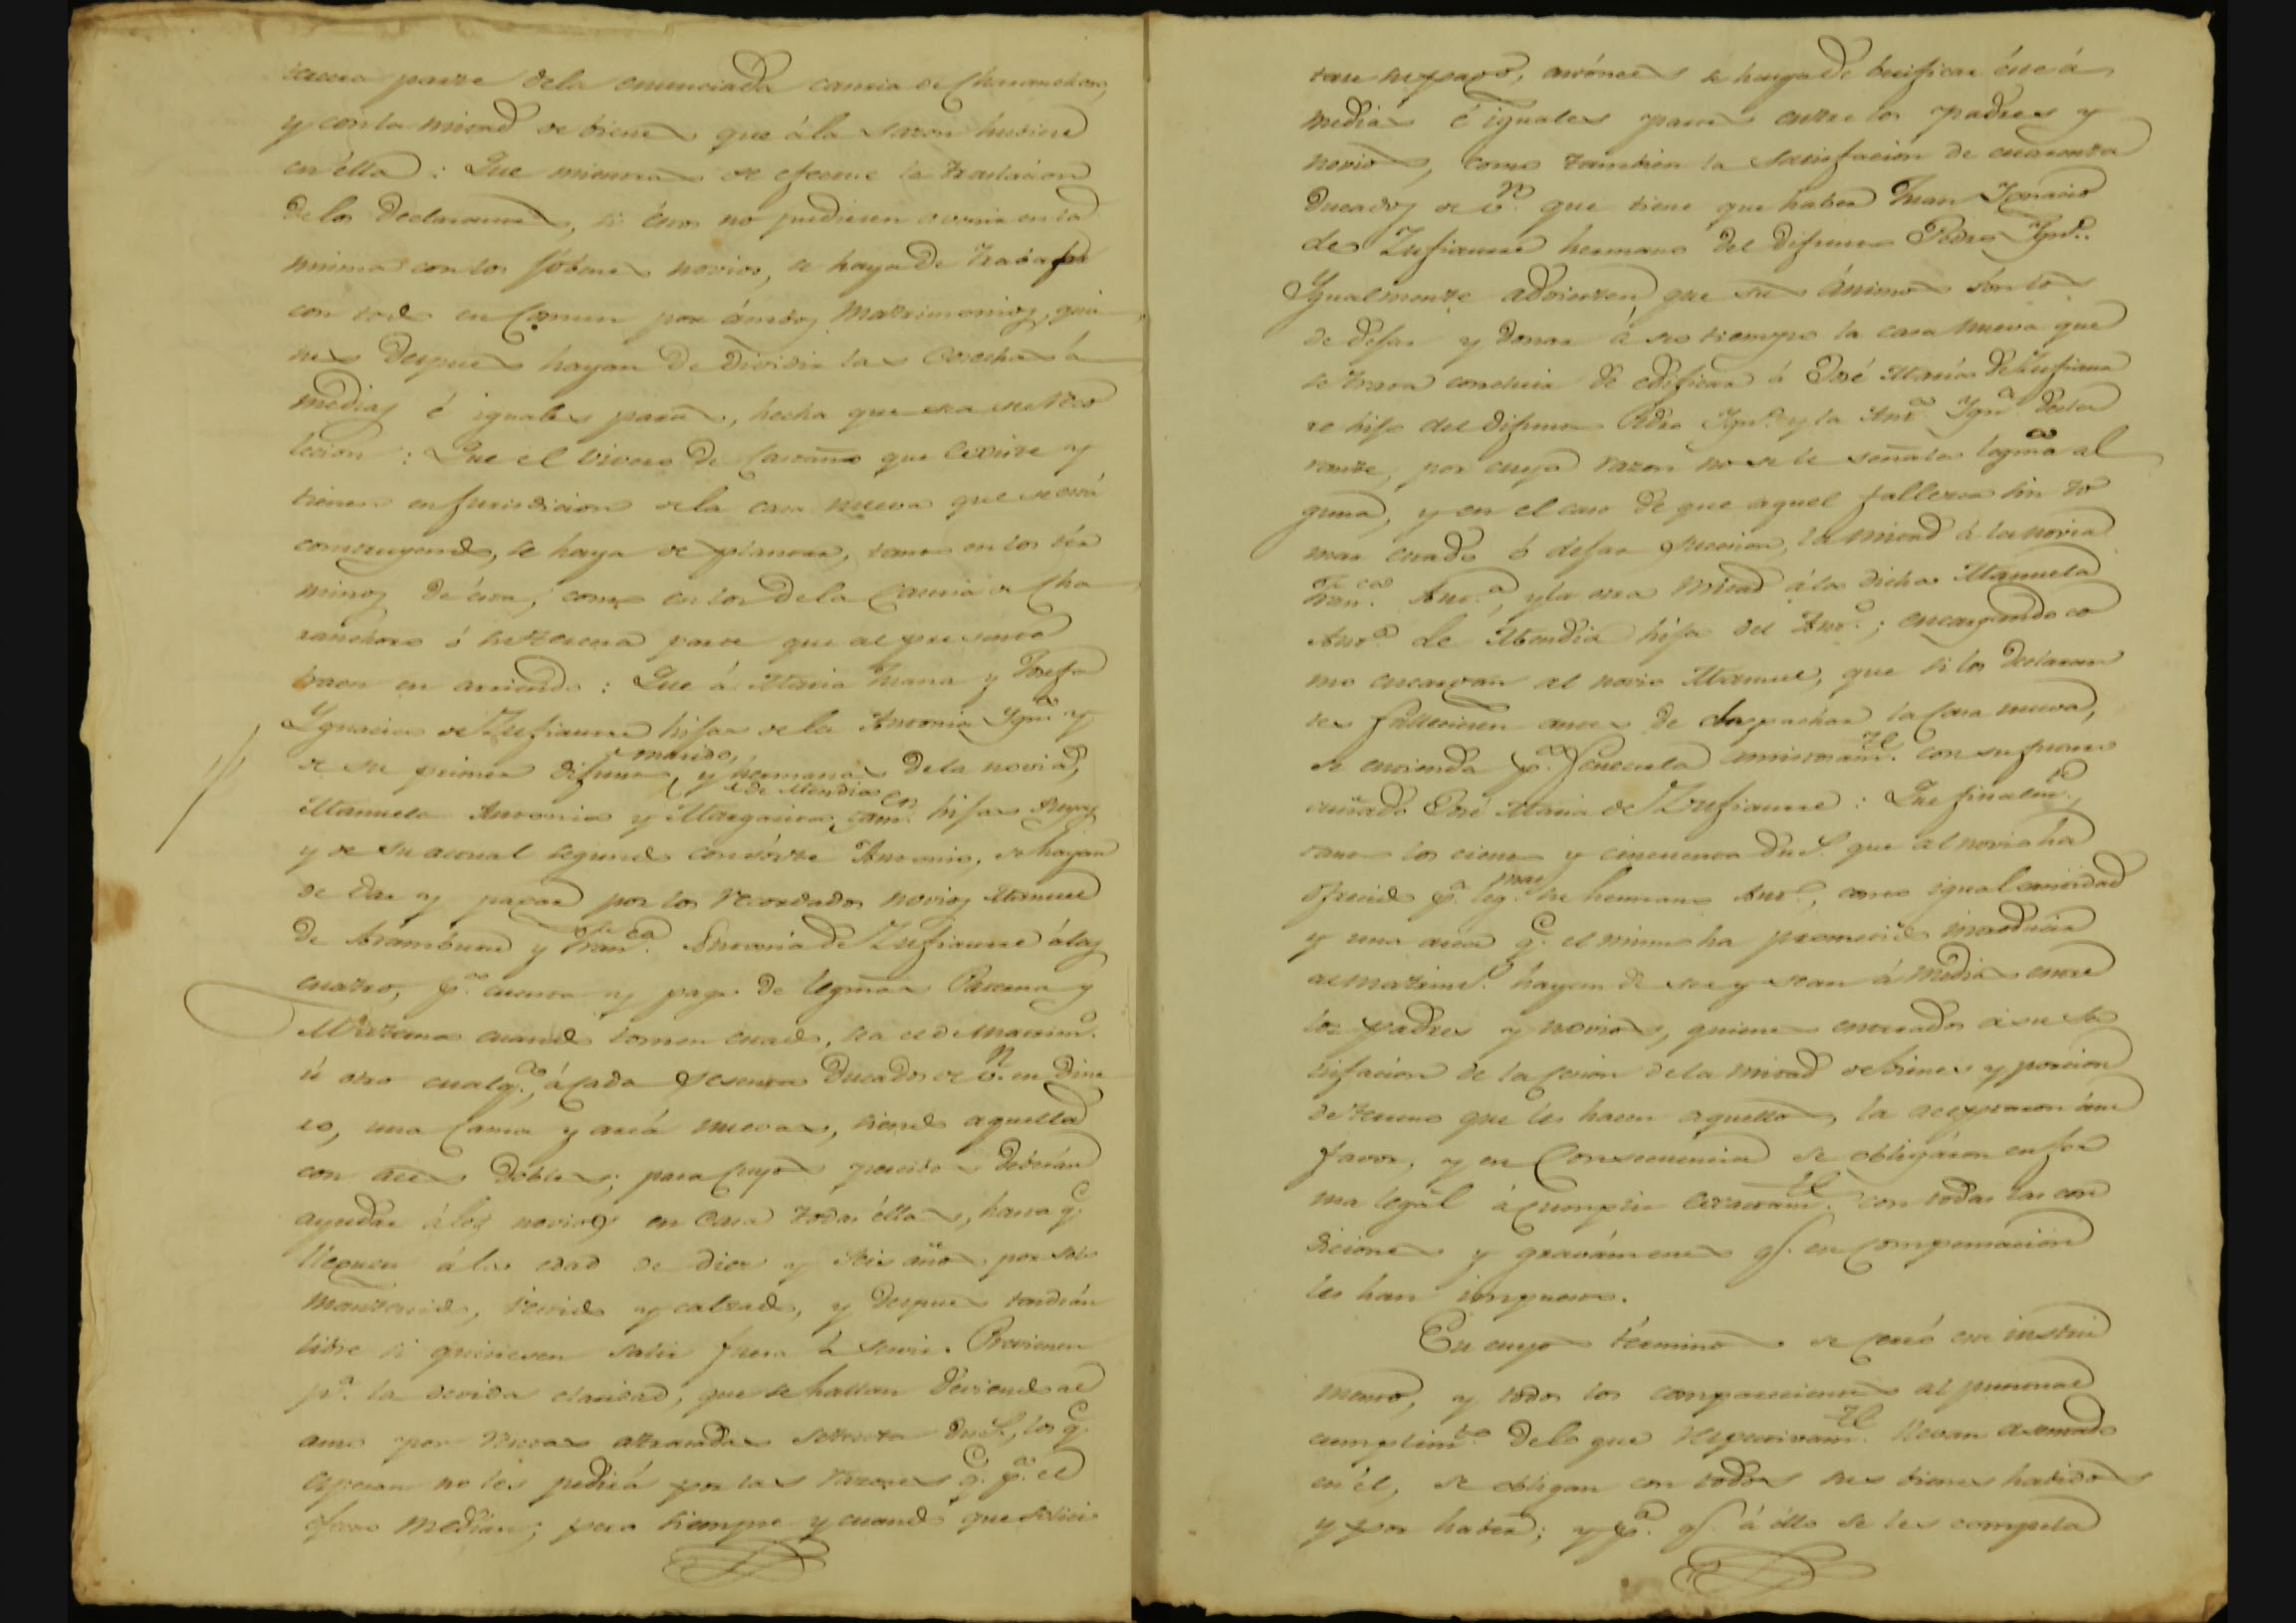 tercera parte dela enunciada caseria de Charanchoro,
y con la mitad de bienes que á la sazon hubiere
en élla: Que mientras se efectue la traslacion
de los Declarantes, si éstos no pudiesen avenir en la
misma con los jóbenes novios, se haya de trabajar
con todo en Comun por ámbos Matrimonios, quie
nes despues hayan de dividir las Cosechas á
medias é iguales partes, hecha que sea su reco
leccion: Que el vivero de Castaños que existe y
tienen en jurisdicion de la casa nueva que se está
construyendo, se haya de plantar, tanto en los tér
minos de ésta, como en los dela Caseria de Cha
ranchoro ó su tercera parte que al presente
traen en arriendo: Que á Maria Juana y Josefa
Ygnacia de Zufiaurre hijas de la Antonia Ygnª y
de su primer difunto marido, y hermanas de la novia,
Manuela Antonia y Margarita de Mendia tambn. hijas suyas
y de su actual segundo consórte Antonio, se hayan
de dar y pagar por los recordados novios Manuel
de Arámburu y Franca. Antonia de Zufiaurre á las
cuatro, pª. cuenta y pago de legmas Paterna y
Materna cuando tomen estado, sea el de Matrimº.
ú otro cualqª., á Cada sesenta Ducados de vn. en dine
ro, una Cama y arca nuevas, siendo aquella
con aces dobles; para cuyo percibo deberán
ayudar á los novios en Casa todas éllas, hasta q.
lleguen á la edad de diez y seis años por solo
mantenido, vestido y calzado, y despues tendrán
libre si quisiesen salir fuera á servir. Previenen
pª. la devida claridad, que se hallan deviendo al
amo por rentas atrasadas setenta Dus., los q.
esperan no les pedirá por las razones q. pª. el
efecto median; pero siempre y cuando que solici
tare su pago, entónces se haya de berificar éste á
medias é iguales partes entre los padres y
novios, como tambien la satisfacion de cuarenta
Ducados de vn. que tiene que haber Juan Ygnacio
de Zufiaurre hermano del difunto Pedro Ygnº.
Ygualmente advierten que sus ánimos son los
de dejar y donar á su tiempo la casa nueva que
se trata concluir de edificar á José Maria de Zufiaur
re hijo del difunto Pedro Ygnº. y la Antª. Ygnª. decla
rante, por cuya razon no se le señala legma al
guna, y en el caso de que aquel fallezca sin to
mar estado ó dejar sucesion, la mitad á la novia
Franca. Antª., y la otra mitad á la dicha Manuela
Antª. de Mendia hija del Antº.; encargando co
mo encargan al novio Manuel, que si los declaran
tes falleciesen antes de despachar la Casa nueva,
se entienda pª. Fenecerla amistosamte. con su futuro
cuñado José Maria de Zufiaurre: Que finalmte.
tanto los ciento y cincuenta Dus. que al novio ha
ofrecido pª. legmas su hermano Antº., como igual cantidad
y una arca q. el mismo ha prometido introducir
al matrimº. hayan de ser y sean á medias entre
los padres y novios, quienes enterados á su sa
tisfacion de la Cesion de la mitad de bienes y porcion
de terreno que les hacen aquellos, la aceptaron á su
favor, y en Consecuencia se obligáron en for
ma legál á Cumplir exactamte. con todas las con
diciones y gravámenes qs. en Compensacion
les han impuesto.
En cuyos términos se cerró este instru
mento, y todos los comparecientes al puntual
cumplimto. Delo que respectivamte. llevan asentado
en él, se obligan con todos sus bienes habidos
y por haber; y pª. qs. á éllo se les compela